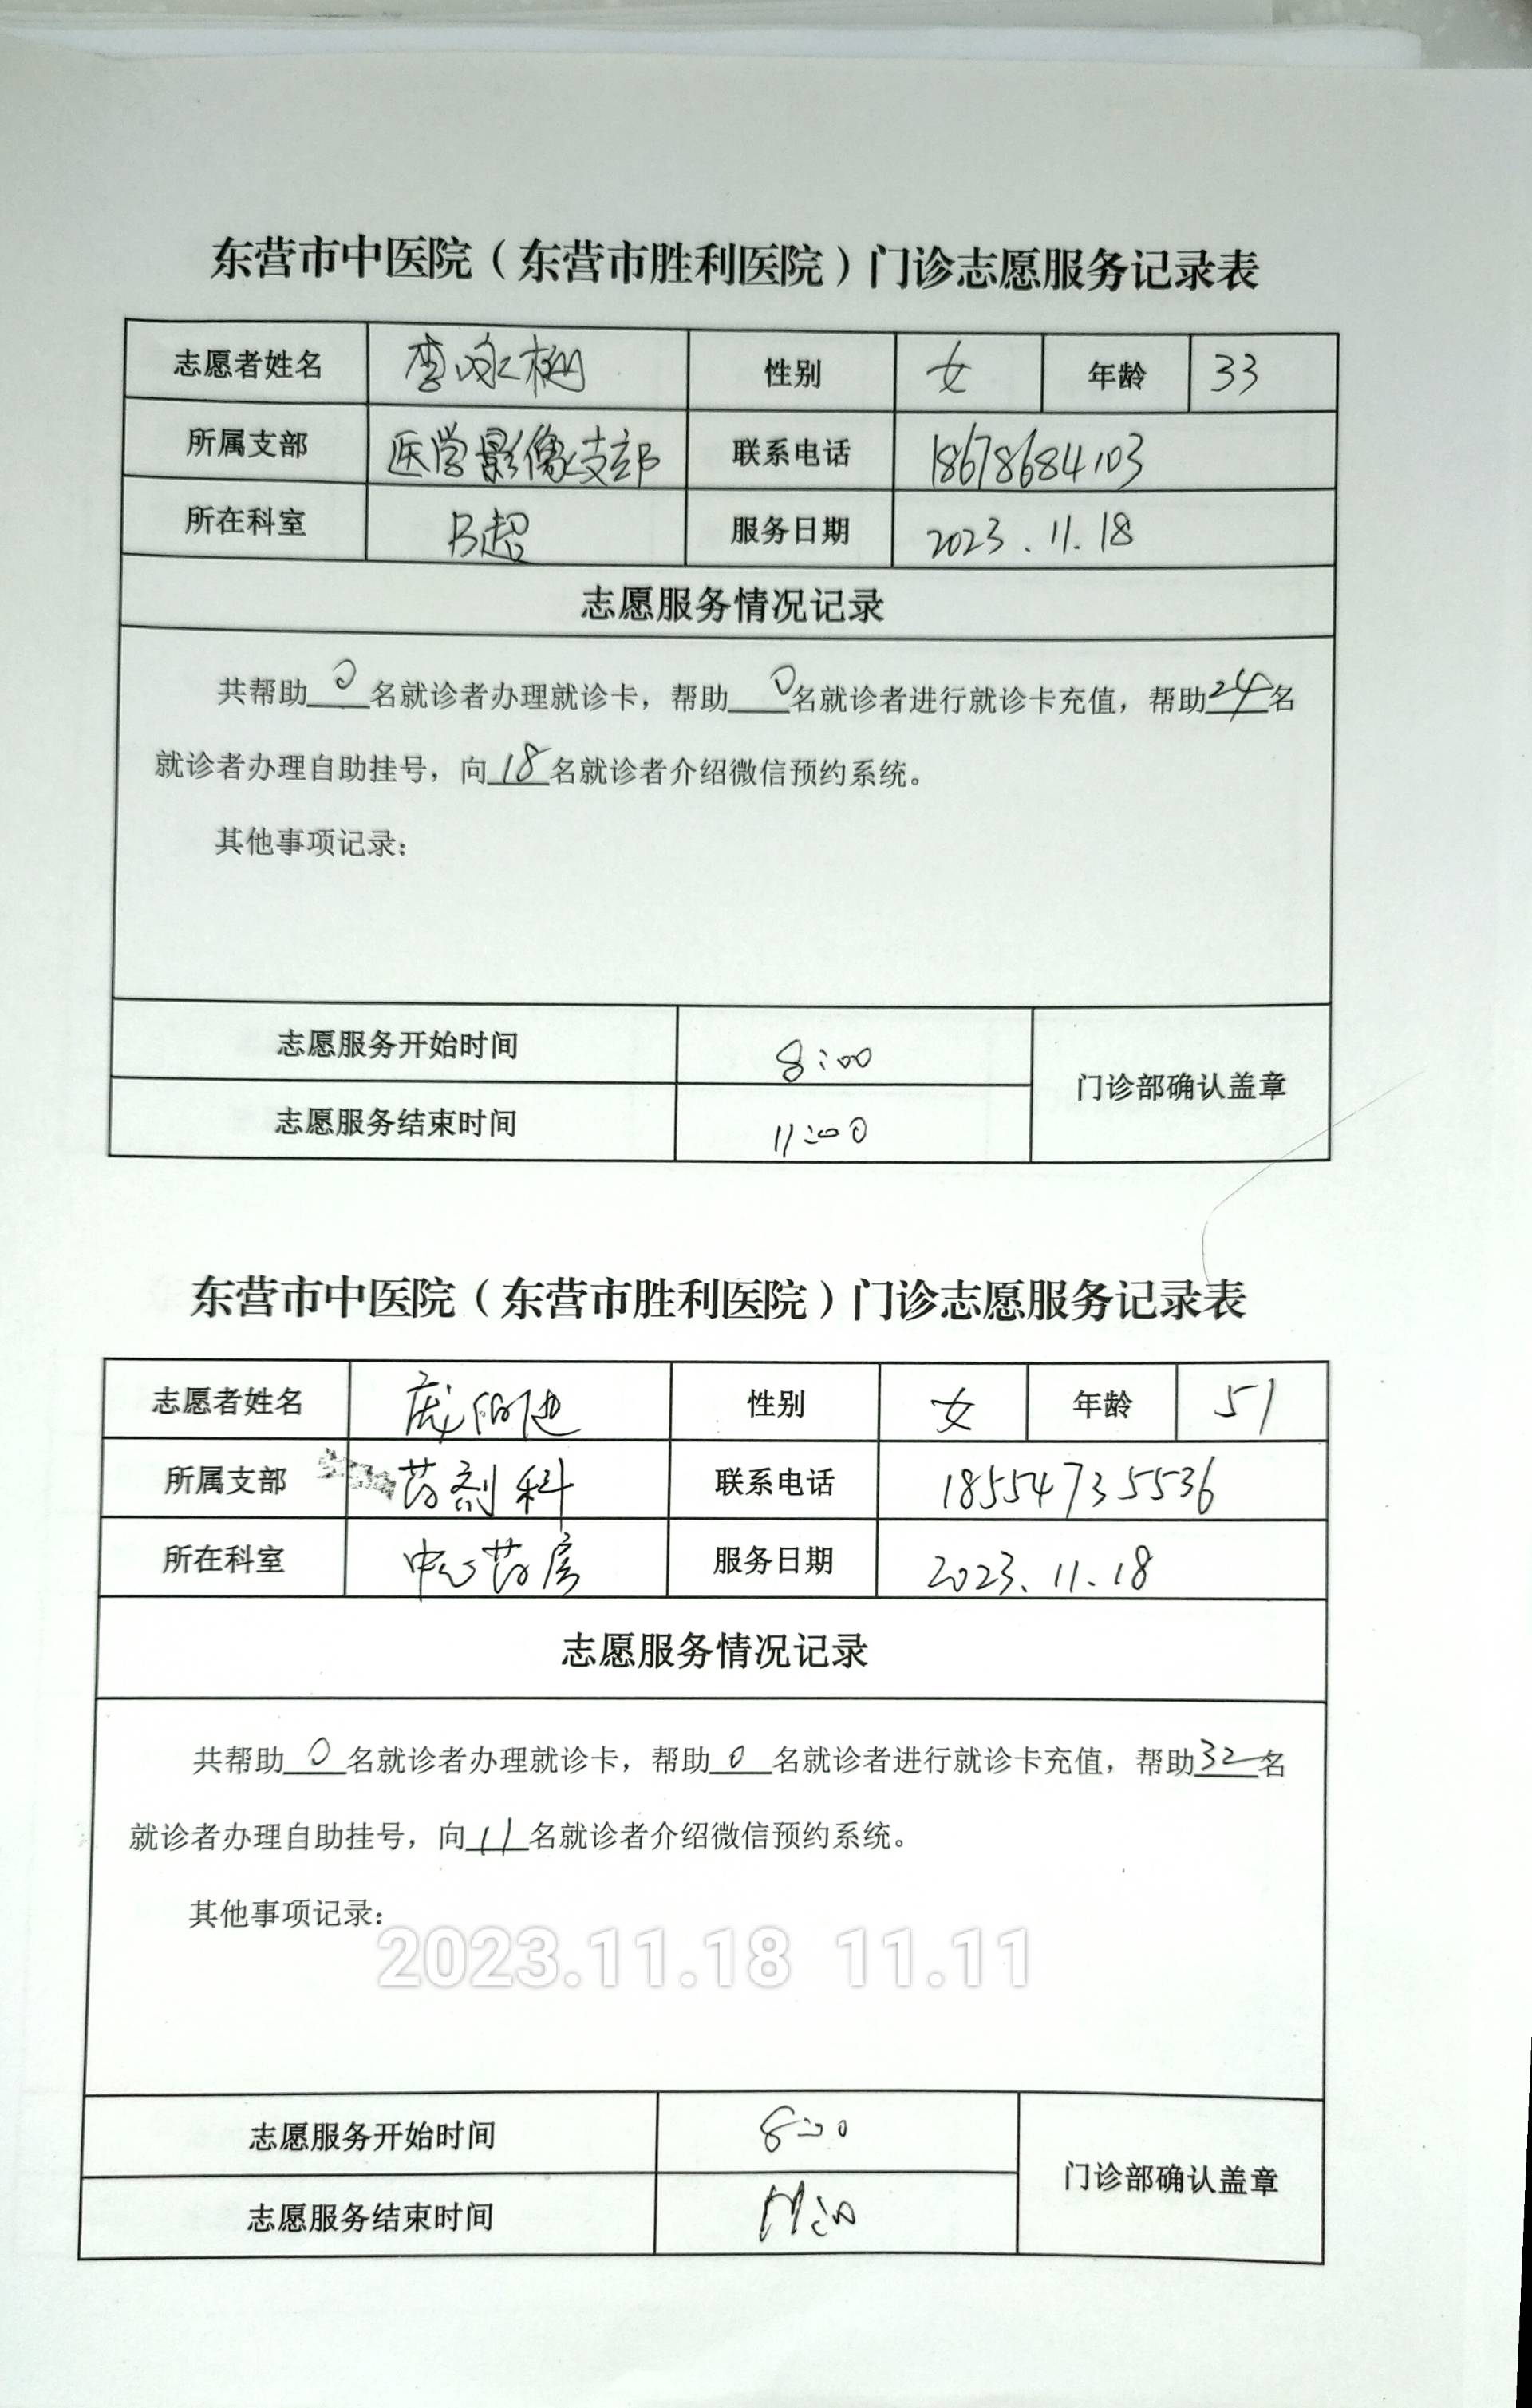 东营市中医院（东营市胜利医院）门诊志愿服务记录表
志愿者姓名 李 性别 女 年龄 33
所属支部 医学影像支部 联系电话 18678684103
所在科室 B超 服务日期 2023.11.18
志愿服务情况记录
共帮助0名就诊者办理就诊卡，帮助0名就诊者进行就诊卡充值，帮助24名
就诊者办理自助挂号，向18名就诊者介绍微信预约系统。
其他事项记录：
志愿服务开始时间 8:00
门诊部确认盖章
志愿服务结束时间 11:00
东营市中医院（东营市胜利医院）门诊志愿服务记录表
志愿者姓名 性别 女 年龄 51
所属支部 药剂科 联系电话 18554735536
所在科室 中心药房 服务日期 2023.11.18
志愿服务情况记录
共帮助0名就诊者办理就诊卡，帮助0名就诊者进行就诊卡充值，帮助32名
就诊者办理自助挂号，向11名就诊者介绍微信预约系统。
其他事项记录：
2023.11.18 11.11
志愿服务开始时间 8:00
门诊部确认盖章
志愿服务结束时间 11:00